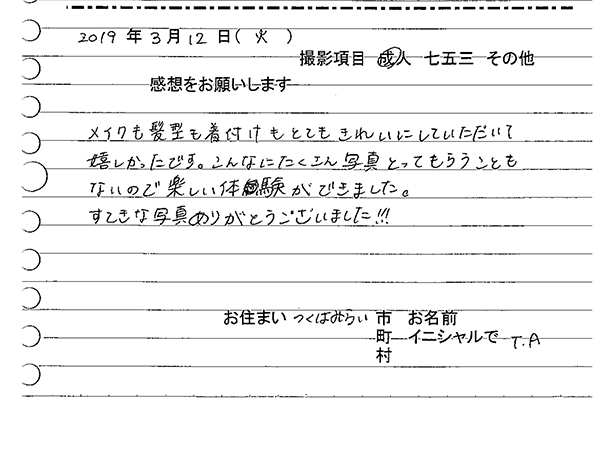 2019年3月12日(火)
撮影項目 成人 七五三 その他
感想をお願いします
メイクも髪型も着付けもとてもきれいにしていただいて
嬉しかったです。こんなにたくさん写真とってもらうことも
ないので楽しい体験ができました。
すてきな写真ありがとうございました!!!
お住まい つくばみらい 市 お名前
町 イニシャルで T.A
村